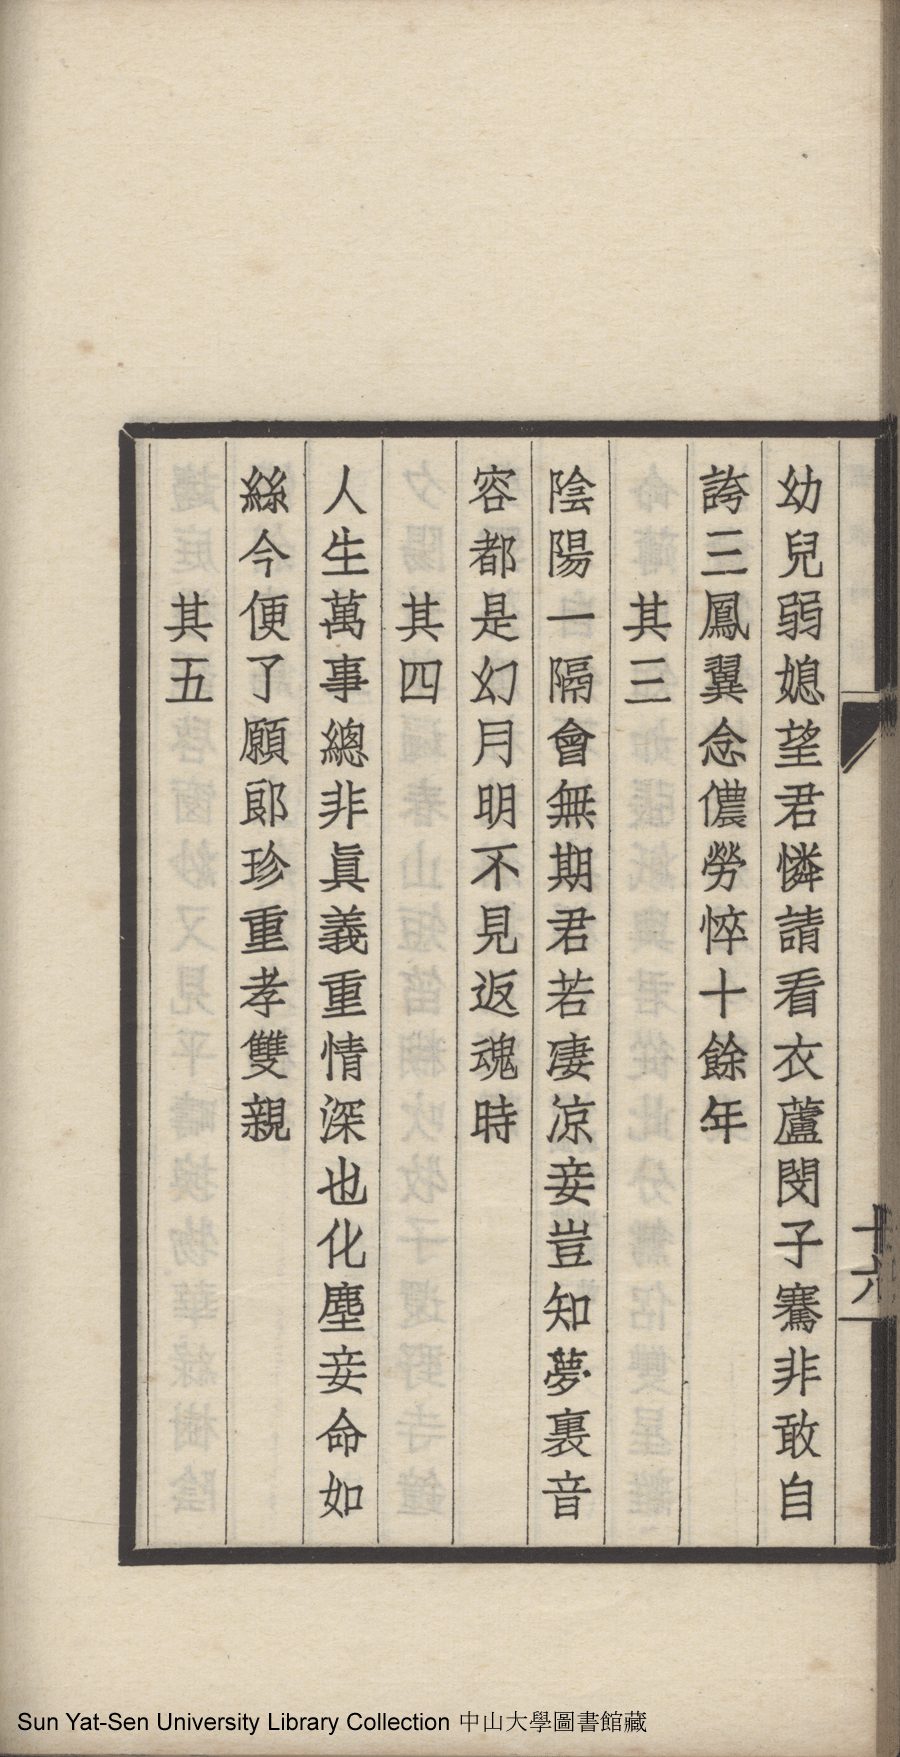 幼兒弱媳望君憐請看衣蘆閔子騫非敢自
誇三鳳翼念儂勞悴十餘年
其三
陰陽一隔會無期君若凄涼妾豈知夢裏音
容都是幻月明不見返魂時
其四
人生萬事總非眞義重情深也化塵妾命如
絲今便了願郎珍重孝雙親
其五
十六
Sun Yat-Sen University Library Collection 中山大學圖書館藏